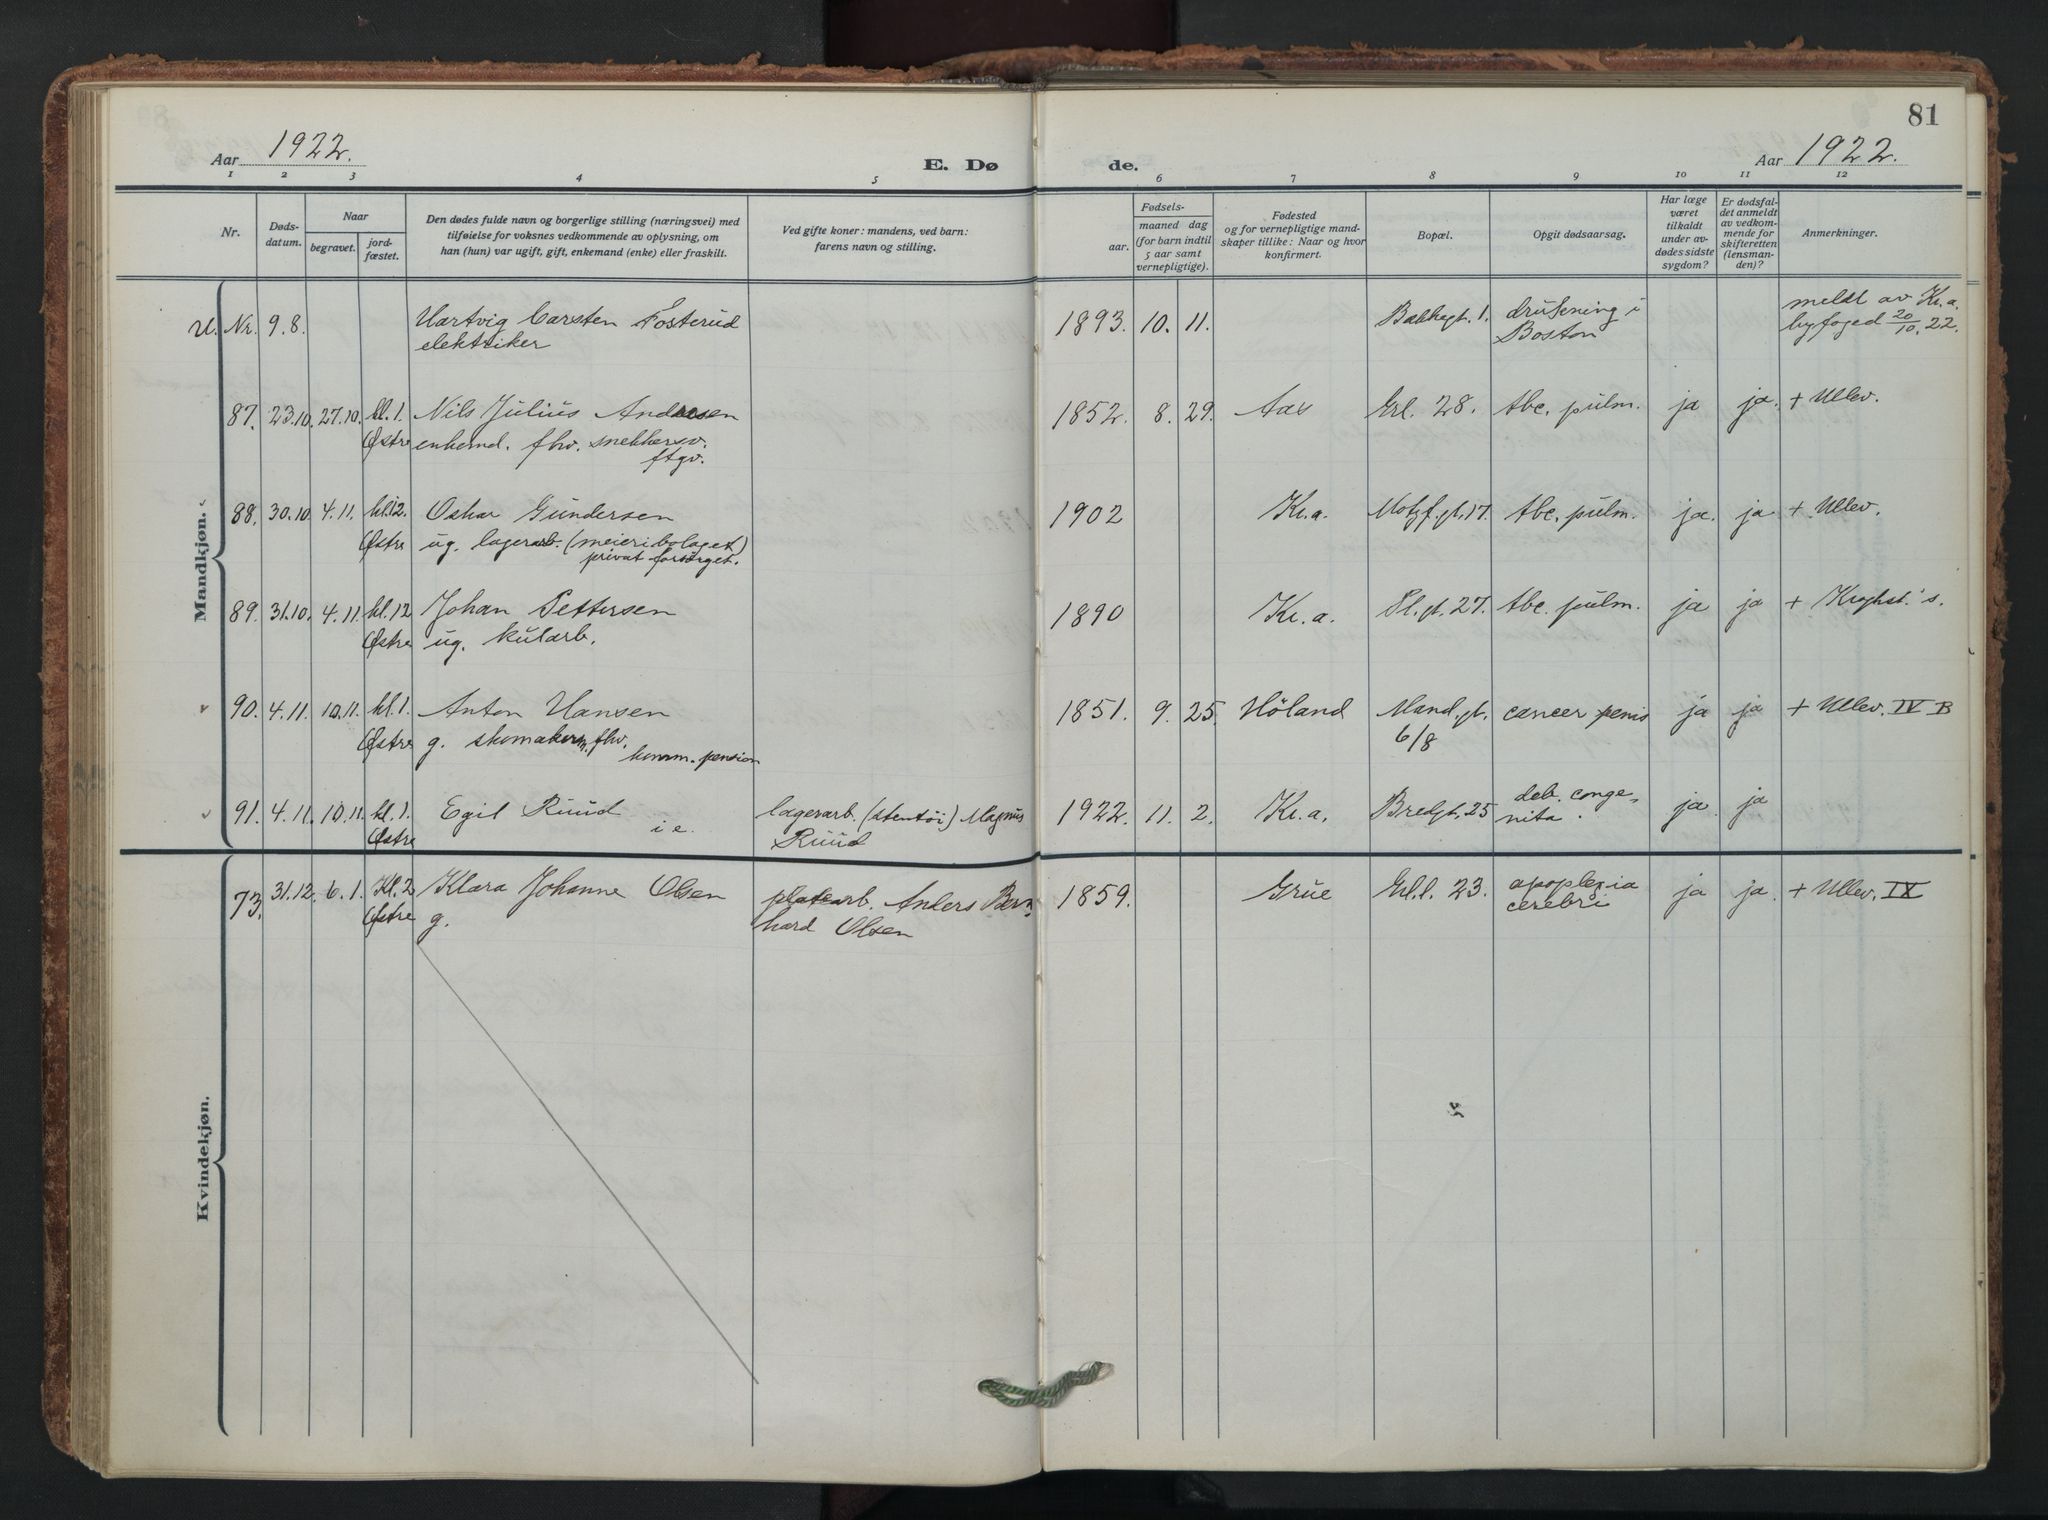 81
Aar 1922.
E. Dø
de.
Aar 1922.
1 2 3 4 5 6 7 8 9 10 11 12
Nr.
Døds-
datum.
Naar
begravet.
jord-
fæstet.
Den dødes fulde navn og borgerlige stilling (næringsvei) med
tilføielse for voksnes vedkommende av oplysning, om
han (hun) var ugift, gift, enkemand (enke) eller fraskilt.
Ved gifte koner: mandens, ved barn:
farens navn og stilling.
Fødsels-
aar.
maaned dag
(for barn indtil
5 aar samt
vernepligtige).
Fødested
og for vernepligtige mand-
skaper tillike: Naar og hvor
konfirmert.
Bopæl.
Opgit dødsaarsag.
Har læge
været
tilkaldt
under av-
dødes sidste
sygdom?
Er dødsfal-
det anmeldt
av vedkom-
mende for
skifteretten
(lensman-
den)?
Anmerkninger.
Mandkjøn.
U. Nr. 9.8. Hartvig Carsten Fosterud 1893. 10. 11. 1. drukning i meldt av Kr.a.
elektriker Boston byfoged 20/10. 22.
87. 23.10. 27.10. kl. 1. Nils Julius Andresen 1852. 8. 29. Aas Grl. 28. tbc. pulm. ja ja. + Ullev.
Østre enkemd. fhv. snekkersv.
ftgv.
88. 30.10. 4.11. kl. 12. Oskar Gundersen 1902 Kr.a. Motzf.gt. 17. tbc. pulm. ja. ja + Ullev.
Østre ug. lagerarb. (meieribolaget)
privat forsørget.
89. 31.10. 4.11. kl. 12 Johan Pettersen 1890 Kr.a. Pl.gt. 27. tbc. pulm. ja ja + Kroghst.'s.
Østre ug. kularb.
90. 4.11. 10.11. kl. 1. Anton Hansen 1851. 9. 25. Höland Mand.gt. cancer penis ja ja + Ullev. IV B
Østre g. skomakerm. fhv. 6/8
komm. pension
91. 4.11. 10.11. kl. 1. Egil Ruud i e. lagerarb. (stentöi) Magnus 1922. 11. 2. Kr.a. Bredgt. 25 deb. conge- ja. ja
Østre Ruud nita.
Kvindekjøn.
73. 31.12. 6.1. Kl. 2 Klara Johanne Olsen platearb. Anders Bern- 1859. Grue Grl.l. 23. apoplexia ja ja. + Ullev. IX
Østre g. hard Olsen cerebri